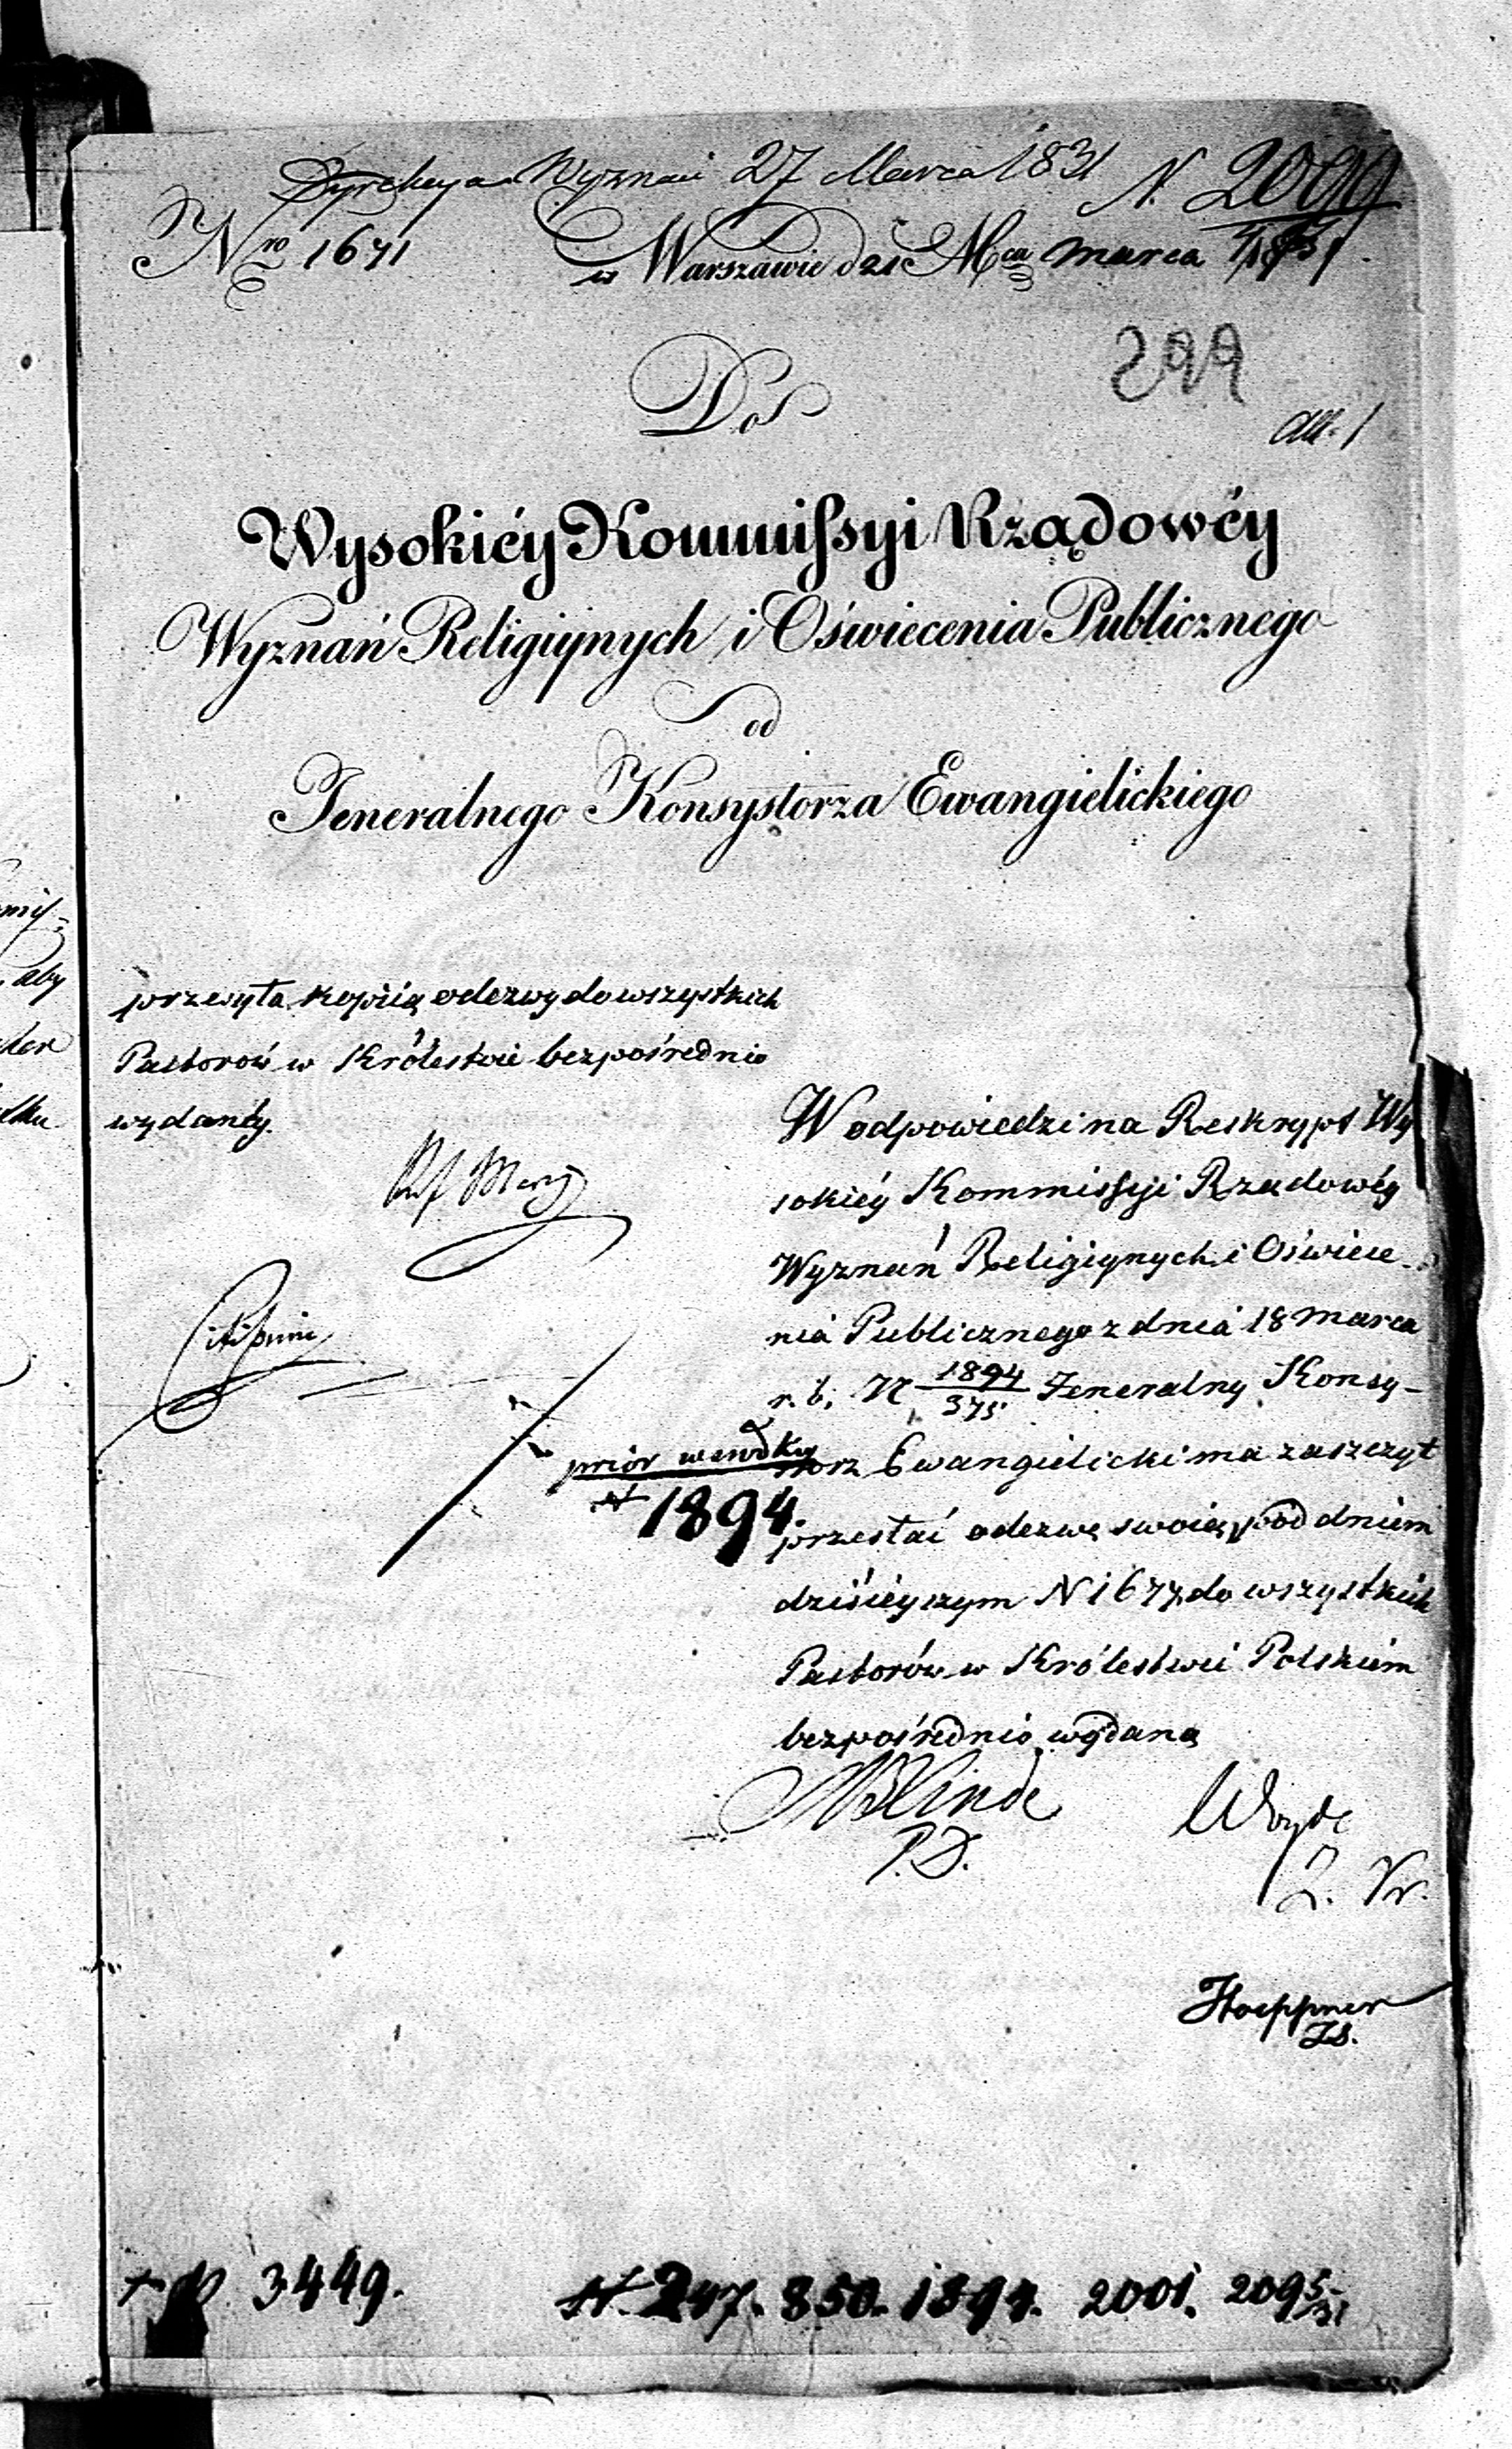 Dyrekcya Wyznań 27 Marca 1831 N. 2099
Nro 1671 w Warszawie d 21 Mca Marca 1831.
299
Do
all. 1
Wysokiéy Kommissyi Rządowéy
Wyznań Religiynych i Oświecenia Publicznego
od
Jeneralnego Konsystorza Ewangielickiego
przesyła kopiią odezwy do wszystkich
Pastorów w Królestwie bezpośrednio
wydanéy.
W odpowiedzi na Reskrypt Wy
sokiéy Kommissyi Rządowéy
Wyznań Religiynych i Oświece-
nia Publicznego z dnia 18 Marca
r. b. N 1894/375 Jeneralny Konsy-
storz Ewangielicki ma zaszczyt
prior
N 1894.
przesłać odezwę swoią pod dniem
dzisieyszym N 1677 do wszystkich
Pastorów w Królestwie Polskiém
bezpośrednio wydaną
Linde
P.D.
Hoeppner
JS.
N. 3449. N. 247. 850. 1894. 2001. 2095/31